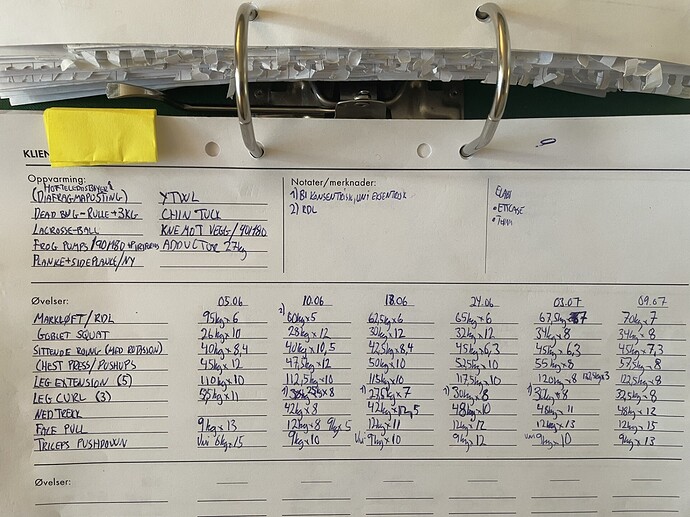 KLIEN
Oppvarming:
(DIAFRAGMAPUSTING) YTWL
DEAD BUG-RULLE+3KG CHIN TUCK
LACROSSE-BALL KNE MOT VEGG/90/480
FROG PUMPS/90/480 ADDUCTOR 27kg
PLANKE+SIDEPLANKE/NY
Notater/merknader:
1) BI KONSENTRISK, UNI EKSENTRISK
2) RDL
Øvelser: 05.06 10.06 18.06 24.06 03.07 09.07
MARKLØFT/RDL 95kg x 6 2) 60kg x 5 62,5kg x 6 65kg x 6 67,5kg 7 70kg x 7
GOBLET SQUAT 26kg x 10 28kg x 12 30kg x 12 32kg x 12 34kg x 8 34kg x 8
SITTENDE ROING (MED ROTASJON) 40kg x 8,4 40kg x 10,5 42,5kg x 8,4 45kg x 6,3 45kg x 6,3 45kg x 7,3
CHEST PRESS/PUSHUPS 45kg x 12 47,5kg x 12 50kg x 10 52,5 x 10 55kg x 8 57,5kg x 8
LEG EXTENSION (5) 110kg x 10 112,5kg x 10 115kg x 10 117,5kg x 10 120kg x 8 122,5kg x 8
LEG CURL (3) 55kg x 11 1) 25kg x 8 1) 27,5kg x 7 1) 30kg x 8 1) 32kg x 8 32,5kg x 8
NEDTREKK 42kg x 8 42kg x 12,5 48kg x 10 48kg x 11 48kg x 12
FACE PULL 9kg x 13 12kg x 8 9kg x 5 12kg x 11 12kg x 12 12kg x 13 12kg x 15
TRICEPS PUSHDOWN Uni 6kg x 15 9kg x 10 Uni 9kg x 10 9kg x 12 uni 9kg x 10 9kg x 13
Øvelser: